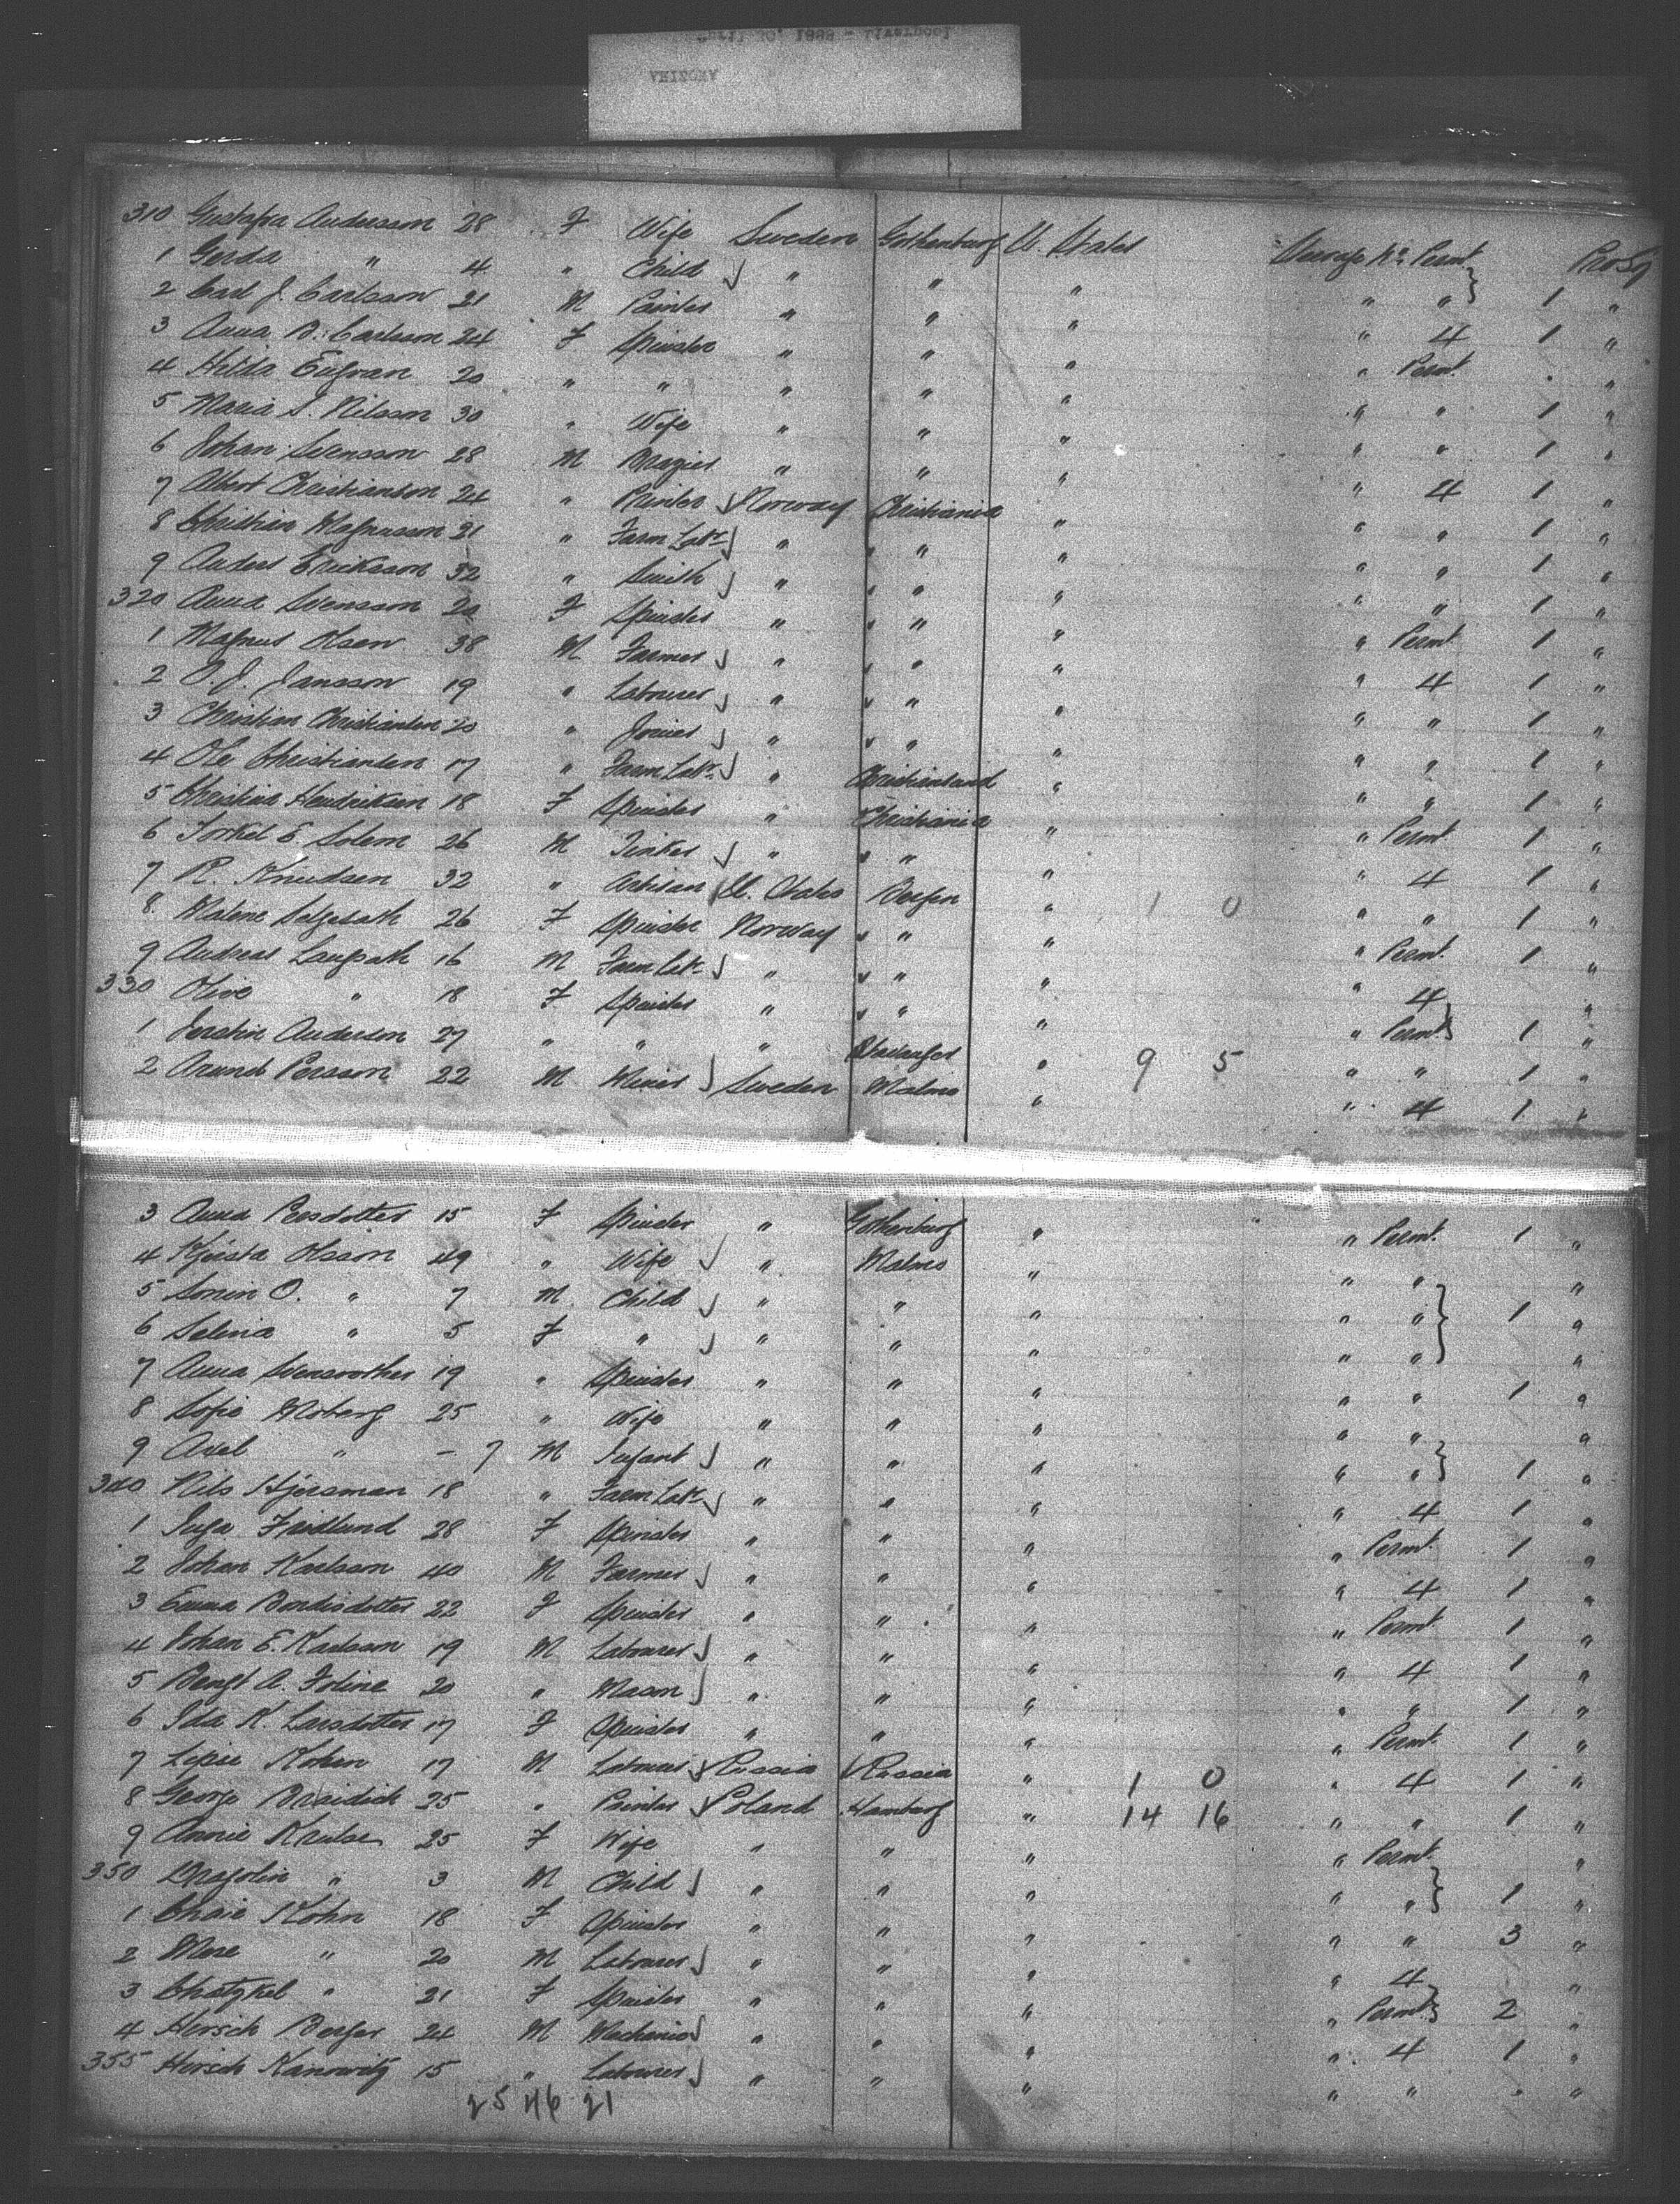 April 30, 1888 - Liverpool
ARIZONA
310 Gustafva Andersson 28 F Wife Sweden Gothenburg U. States Permt
1 Gerda " 4 " Child " " " " " } 1 "
2 Carl J. Carlsson 21 M Painter " " " " 4 1 "
3 Anna B. Carlsson 24 F Spinster " " " " Permt. "
4 Hilda 20 " " " " " " " 1 "
5 Maria S. Nilsson 30 " Wife " " " " " 1 "
6 Johan Svensson 28 M Brazier " " " " 4 1 "
7 Albert Christianson 24 " Printer Norway Christiania " " " 1 "
8 Christian Magnusson 21 " Farm Labr " " " " " 1 "
9 Anders Ericksson 32 " Smith " " " " " 1 "
320 Anna Svensson 20 F Spinster " " " " Permt 1 "
1 Magnus Olsen 38 M Farmer " " " " 4 1 "
2 O. J. Jansson 19 " Labourer " " " " " 1 "
3 Christian Christiansen 20 " Joiner " " " " " 1 "
4 Ole Christiansen 17 " Farm Labr " Christiansand " " " 1 "
5 Christina Hendriksen 18 F Spinster " Christiania " " Permt 1 "
6 Torkel E. Solem 26 M Tinker " " " " 4 1 "
7 R. Knudsen 32 " Artisan U. States Bergen " 1 0 " " 1 "
8 Malene 26 F Spinster Norway " " " Permt. 1 "
9 Andreas 16 M Farm Labr " " " " 4 "
330 Olive " 18 F Spinster " " " " Permt } 1 "
1 Anderson 27 " " " Stavanger " 9 5 " " 1 "
2 Persson 22 M Miner Sweden Malmo " " 4 1 "
3 Anna Persdotter 15 F Spinster " Gothenburg " " Permt. 1 "
4 Kjersta Olsson 49 " Wife " Malmo " " " "
5 O. " 7 M Child " " " " " } 1 "
6 Selina " 5 F " " " " " " "
7 Anna 19 " Spinster " " " " " 1 "
8 Sofie Moberg 25 " Wife " " " " " "
9 Axel " - 7 M Infant " " " " " } 1 "
340 Nils 18 " Farm Labr " " " " 4 1 "
1 Inga Fridlund 28 F Spinster " " " " Permt. 1 "
2 Johan Karlsson 40 M Farmer " " " " 4 1 "
3 Emma 22 F Spinster " " " " Permt. 1 "
4 Johan E. Karlsson 19 M Labourer " " " " 4 1 "
5 Bengt A. 20 " Mason " " " " " 1 "
6 Ida K. Larsdotter 17 F Spinster " " " " Permt. 1 "
7 17 M Labourer Russia Russia " 1 0 " 4 1 "
8 George 25 " Painter Poland Hamburg " 14 16 " " 1 "
9 Annie 25 F Wife " " " " Permt. "
350 " 3 M Child " " " " " } 1 "
1 Chaie Kohn 18 F Spinster " " " " " 3 "
2 " 20 M Labourer " " " " 4 "
3 " 21 F Spinster " " " " Permt } 2 "
4 Hersch Berger 24 M Mechanic " " " " 4 1 "
355 Hirsch Kanowitz 15 " Labourer " " " " " "
25 46 21